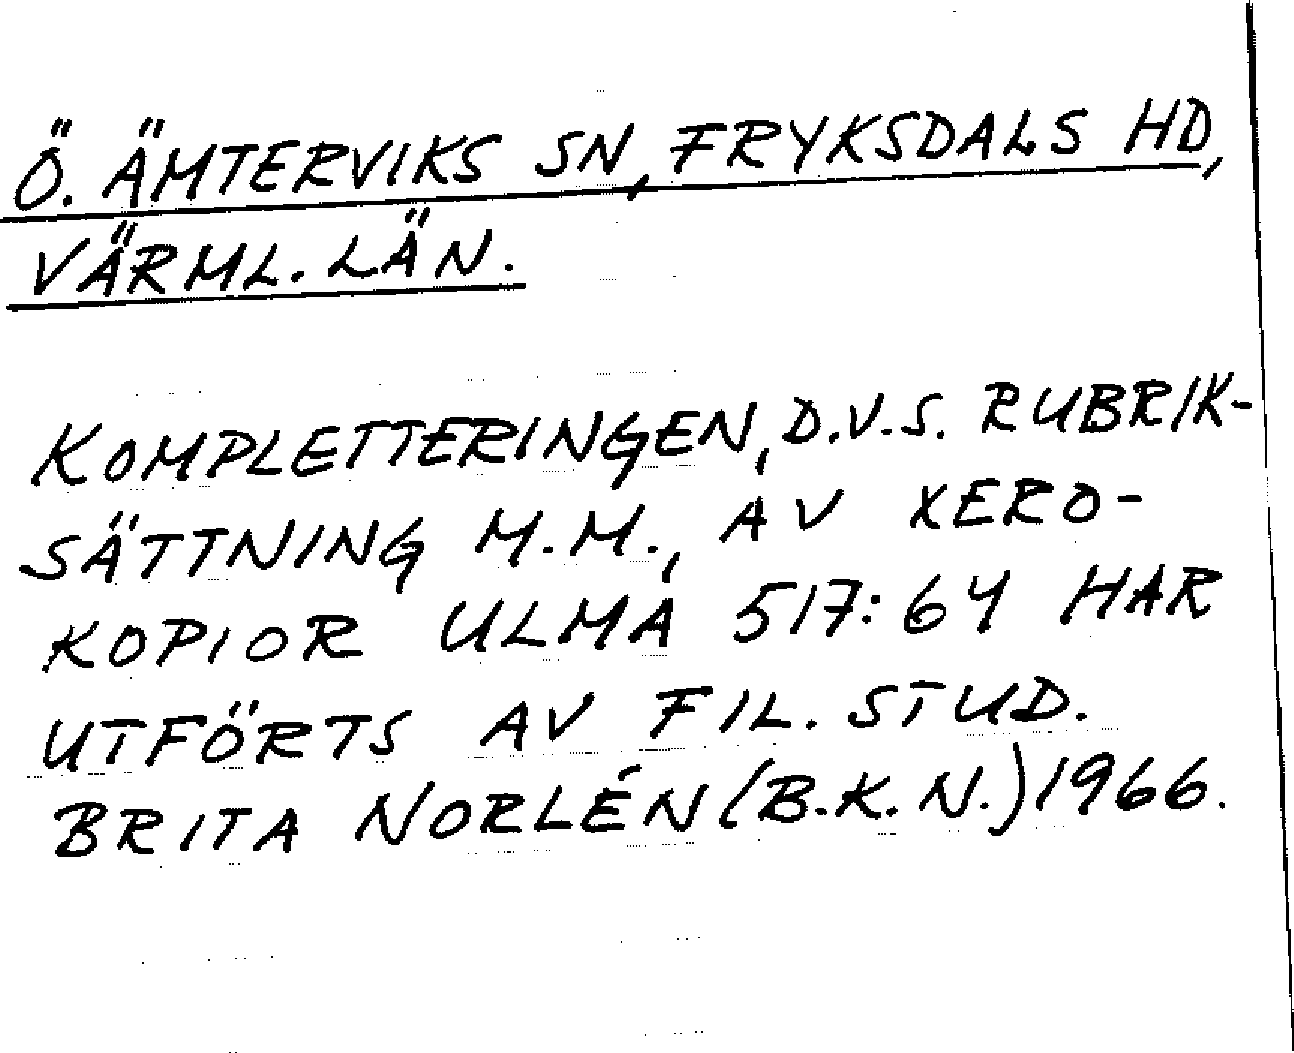 Ö. ÄMTERVIKS SN, FRYKSDALS HD,
VÄRML. LÄN.
KOMPLETTERINGEN, D.V.S. RUBRIK-
SÄTTNING M.M., AV XERO-
KOPIOR ULMA 517:64 HAR
UTFÖRTS AV FIL. STUD.
BRITA NORLÉN (B.K.N.) 1966.